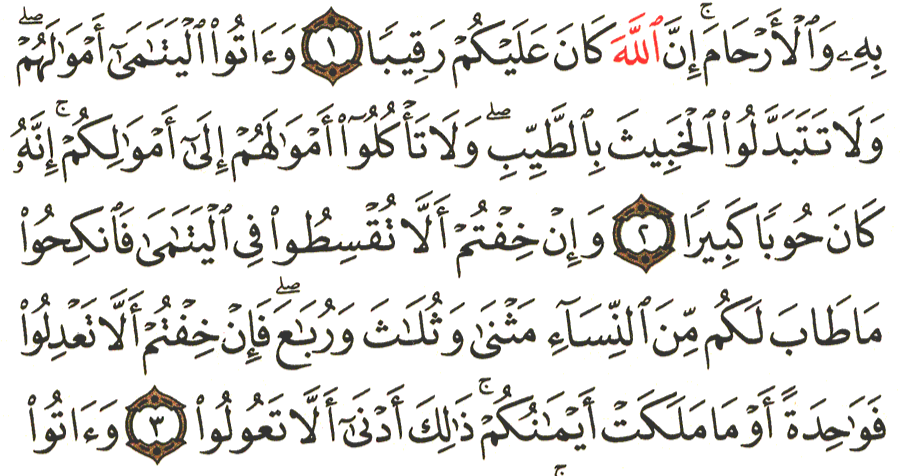 بِهِۦ وَٱلۡأَرۡحَامَۚ إِنَّ ٱللَّهَ كَانَ عَلَيۡكُمۡ رَقِيبٗا ١ وَءَاتُواْ ٱلۡيَتَٰمَىٰٓ أَمۡوَٰلَهُمۡۖ
وَلَا تَتَبَدَّلُواْ ٱلۡخَبِيثَ بِٱلطَّيِّبِۖ وَلَا تَأۡكُلُوٓاْ أَمۡوَٰلَهُمۡ إِلَىٰٓ أَمۡوَٰلِكُمۡۚ إِنَّهُۥ
كَانَ حُوبٗا كَبِيرٗا ٢ وَإِنۡ خِفۡتُمۡ أَلَّا تُقۡسِطُواْ فِي ٱلۡيَتَٰمَىٰ فَٱنكِحُواْ
مَا طَابَ لَكُم مِّنَ ٱلنِّسَآءِ مَثۡنَىٰ وَثُلَٰثَ وَرُبَٰعَۖ فَإِنۡ خِفۡتُمۡ أَلَّا تَعۡدِلُواْ
فَوَٰحِدَةً أَوۡ مَا مَلَكَتۡ أَيۡمَٰنُكُمۡۚ ذَٰلِكَ أَدۡنَىٰٓ أَلَّا تَعُولُواْ ٣ وَءَاتُواْ